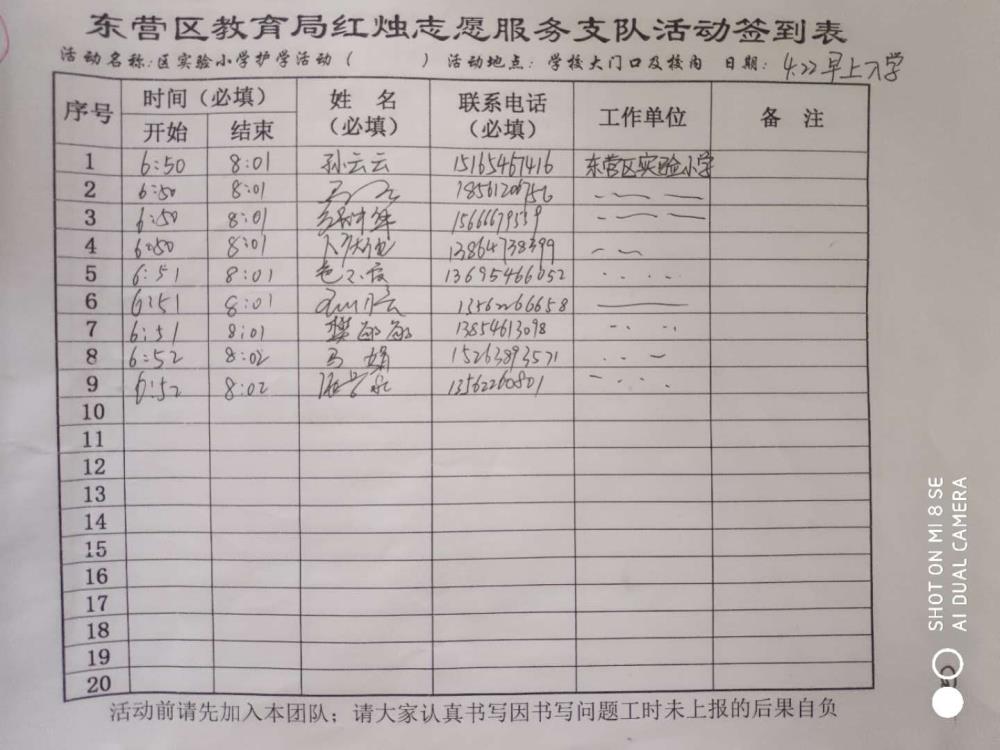 东营区教育局红烛志愿服务支队活动签到表
活动名称:区实验小学护学活动（ ）活动地点：学校大门口及校内 日期：4.22早上入学
序号 时间（必填） 姓 名（必填） 联系电话（必填） 工作单位 备 注
开始 结束
1 6:50 8:01 孙云云 15165467416 东营区实验小学
2 6:50 8:01
3 6:50 8:01
4 6:50 8:01 13864738399
5 6:51 8:01 13695466052
6 6:51 8:01 13562266658
7 6:51 8:01 樊 13854613098
8 6:52 8:02 马娟 15263893571
9 6:52 8:02 13562260801
10
11
12
13
14
15
16
17
18
19
20
活动前请先加入本团队；请大家认真书写因书写问题工时未上报的后果自负
SHOT ON MI 8 SE
AI DUAL CAMERA